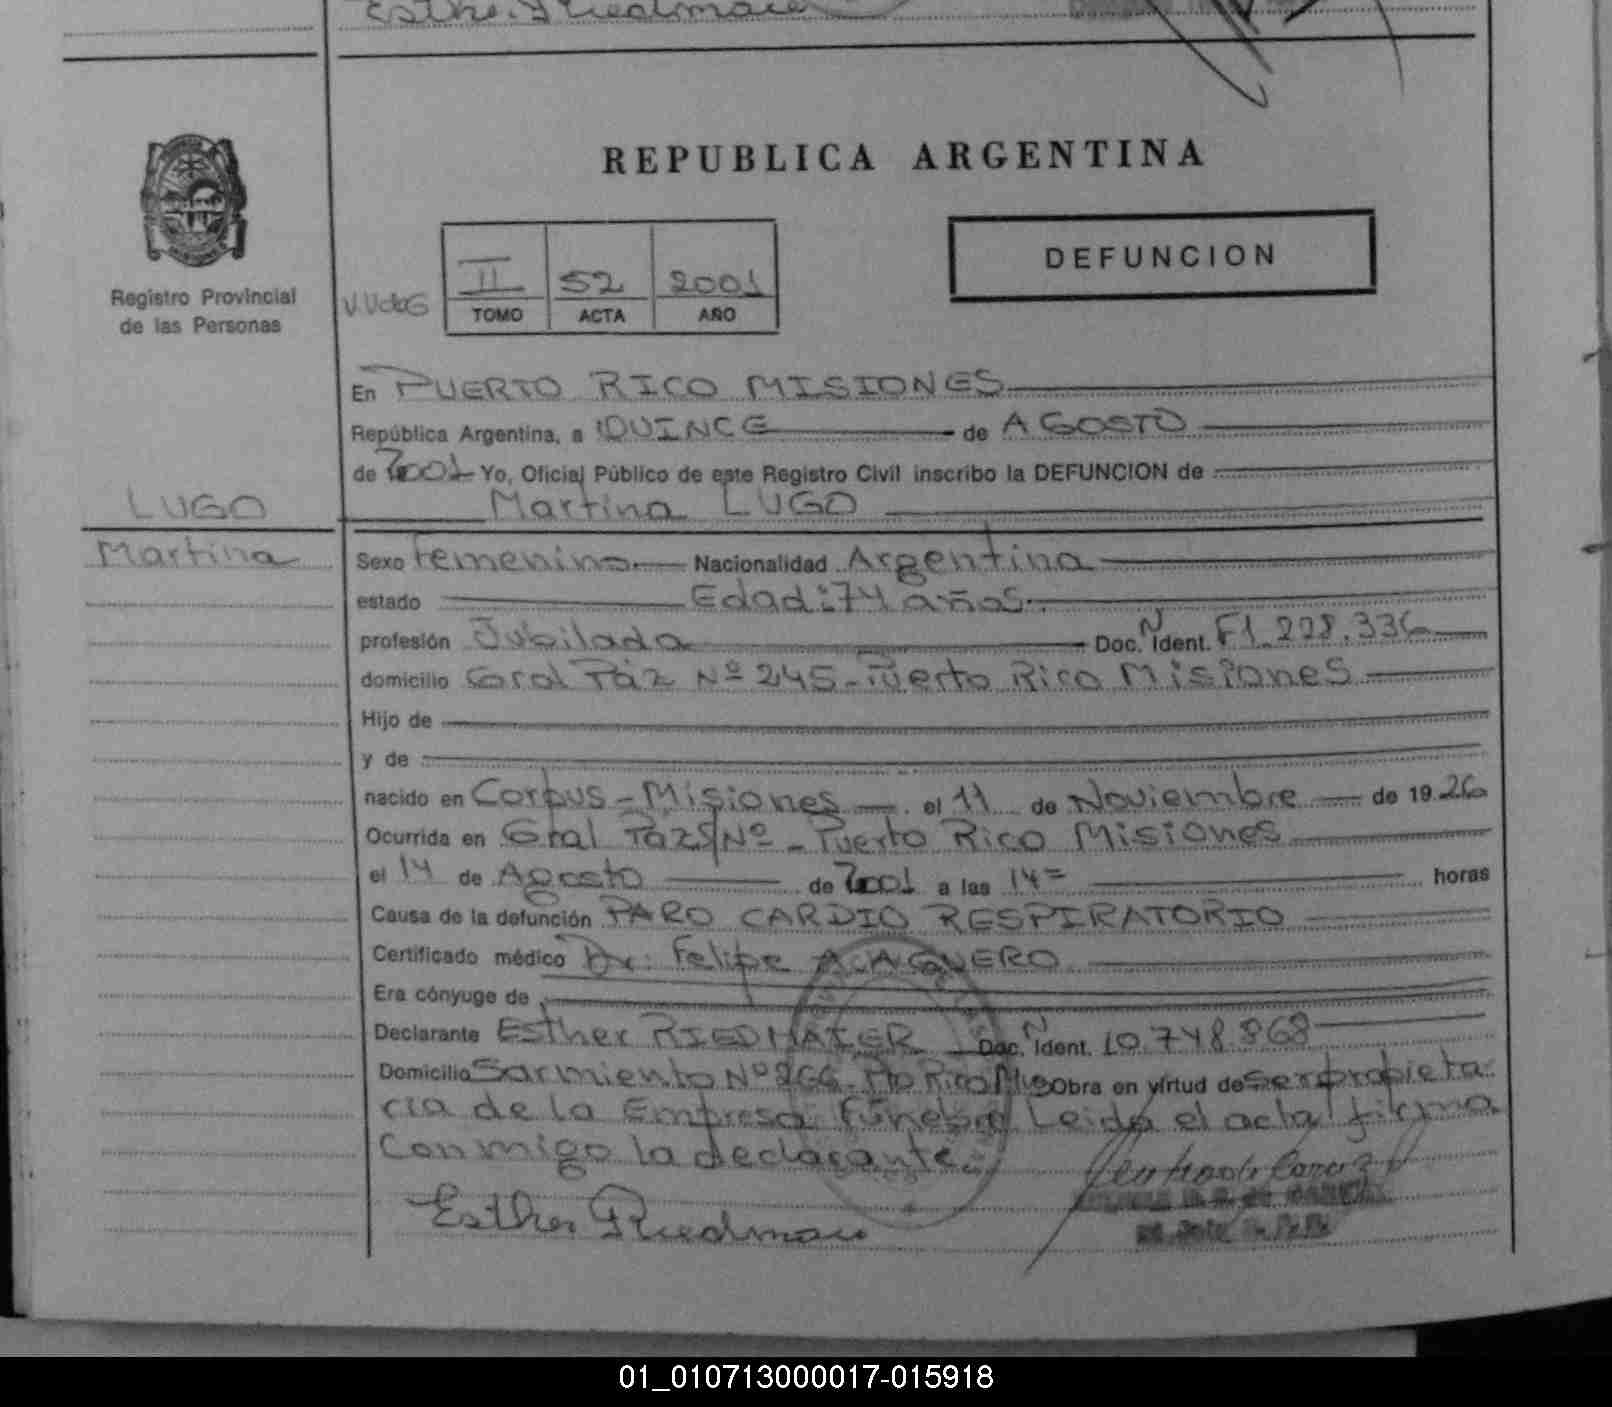 Esther Riedmaier
REPUBLICA ARGENTINA
DEFUNCION
II 52 2001
TOMO ACTA AÑO
Registro Provincial
de las Personas
En PUERTO RICO MISIONES
República Argentina, a QUINCE de AGOSTO
de 2001 Yo, Oficial Público de este Registro Civil inscribo la DEFUNCION de
LUGO
Martina LUGO
Martina
Sexo Femenino Nacionalidad Argentina
estado Edad: 74 años.
profesión Jubilada Doc. N Ident. F1.228.336
domicilio Gral Paz Nº 245 - Puerto Rico Misiones
Hijo de
y de
nacido en Corpus - Misiones el 11 de Noviembre de 1926
Ocurrida en Gral Paz S/Nº - Puerto Rico Misiones
el 14 de Agosto de 2001 a las 14 = horas
Causa de la defunción PARO CARDIO RESPIRATORIO
Certificado médico Dr. Felipe A. AGUERO
Era cónyuge de
Declarante Esther RIEDMAIER Doc. N Ident. 10.748.868
Domicilio Sarmiento Nº 266 - Pto Rico Mis Obra en virtud de ser propieta-
ria de la Empresa Fúnebre Leida el acta firma
Conmigo la declarante.
Esther Riedmaier
01_010713000017-015918